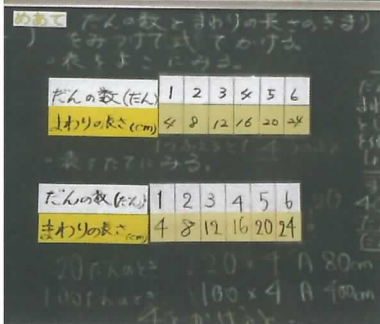 めあて だんの数とまわりの長さのきまり
をみつけて式でかける
・表をよこにみる。
だんの数(だん) 1 2 3 4 5 6
まわりの長さ(cm) 4 8 12 16 20 24
・表をたてにみる。
だんの数(だん) 1 2 3 4 5 6
まわりの長さ(cm) 4 8 12 16 20 24
20だんのとき 20×4 A 80cm
100だんのとき 100×4 A 400cm